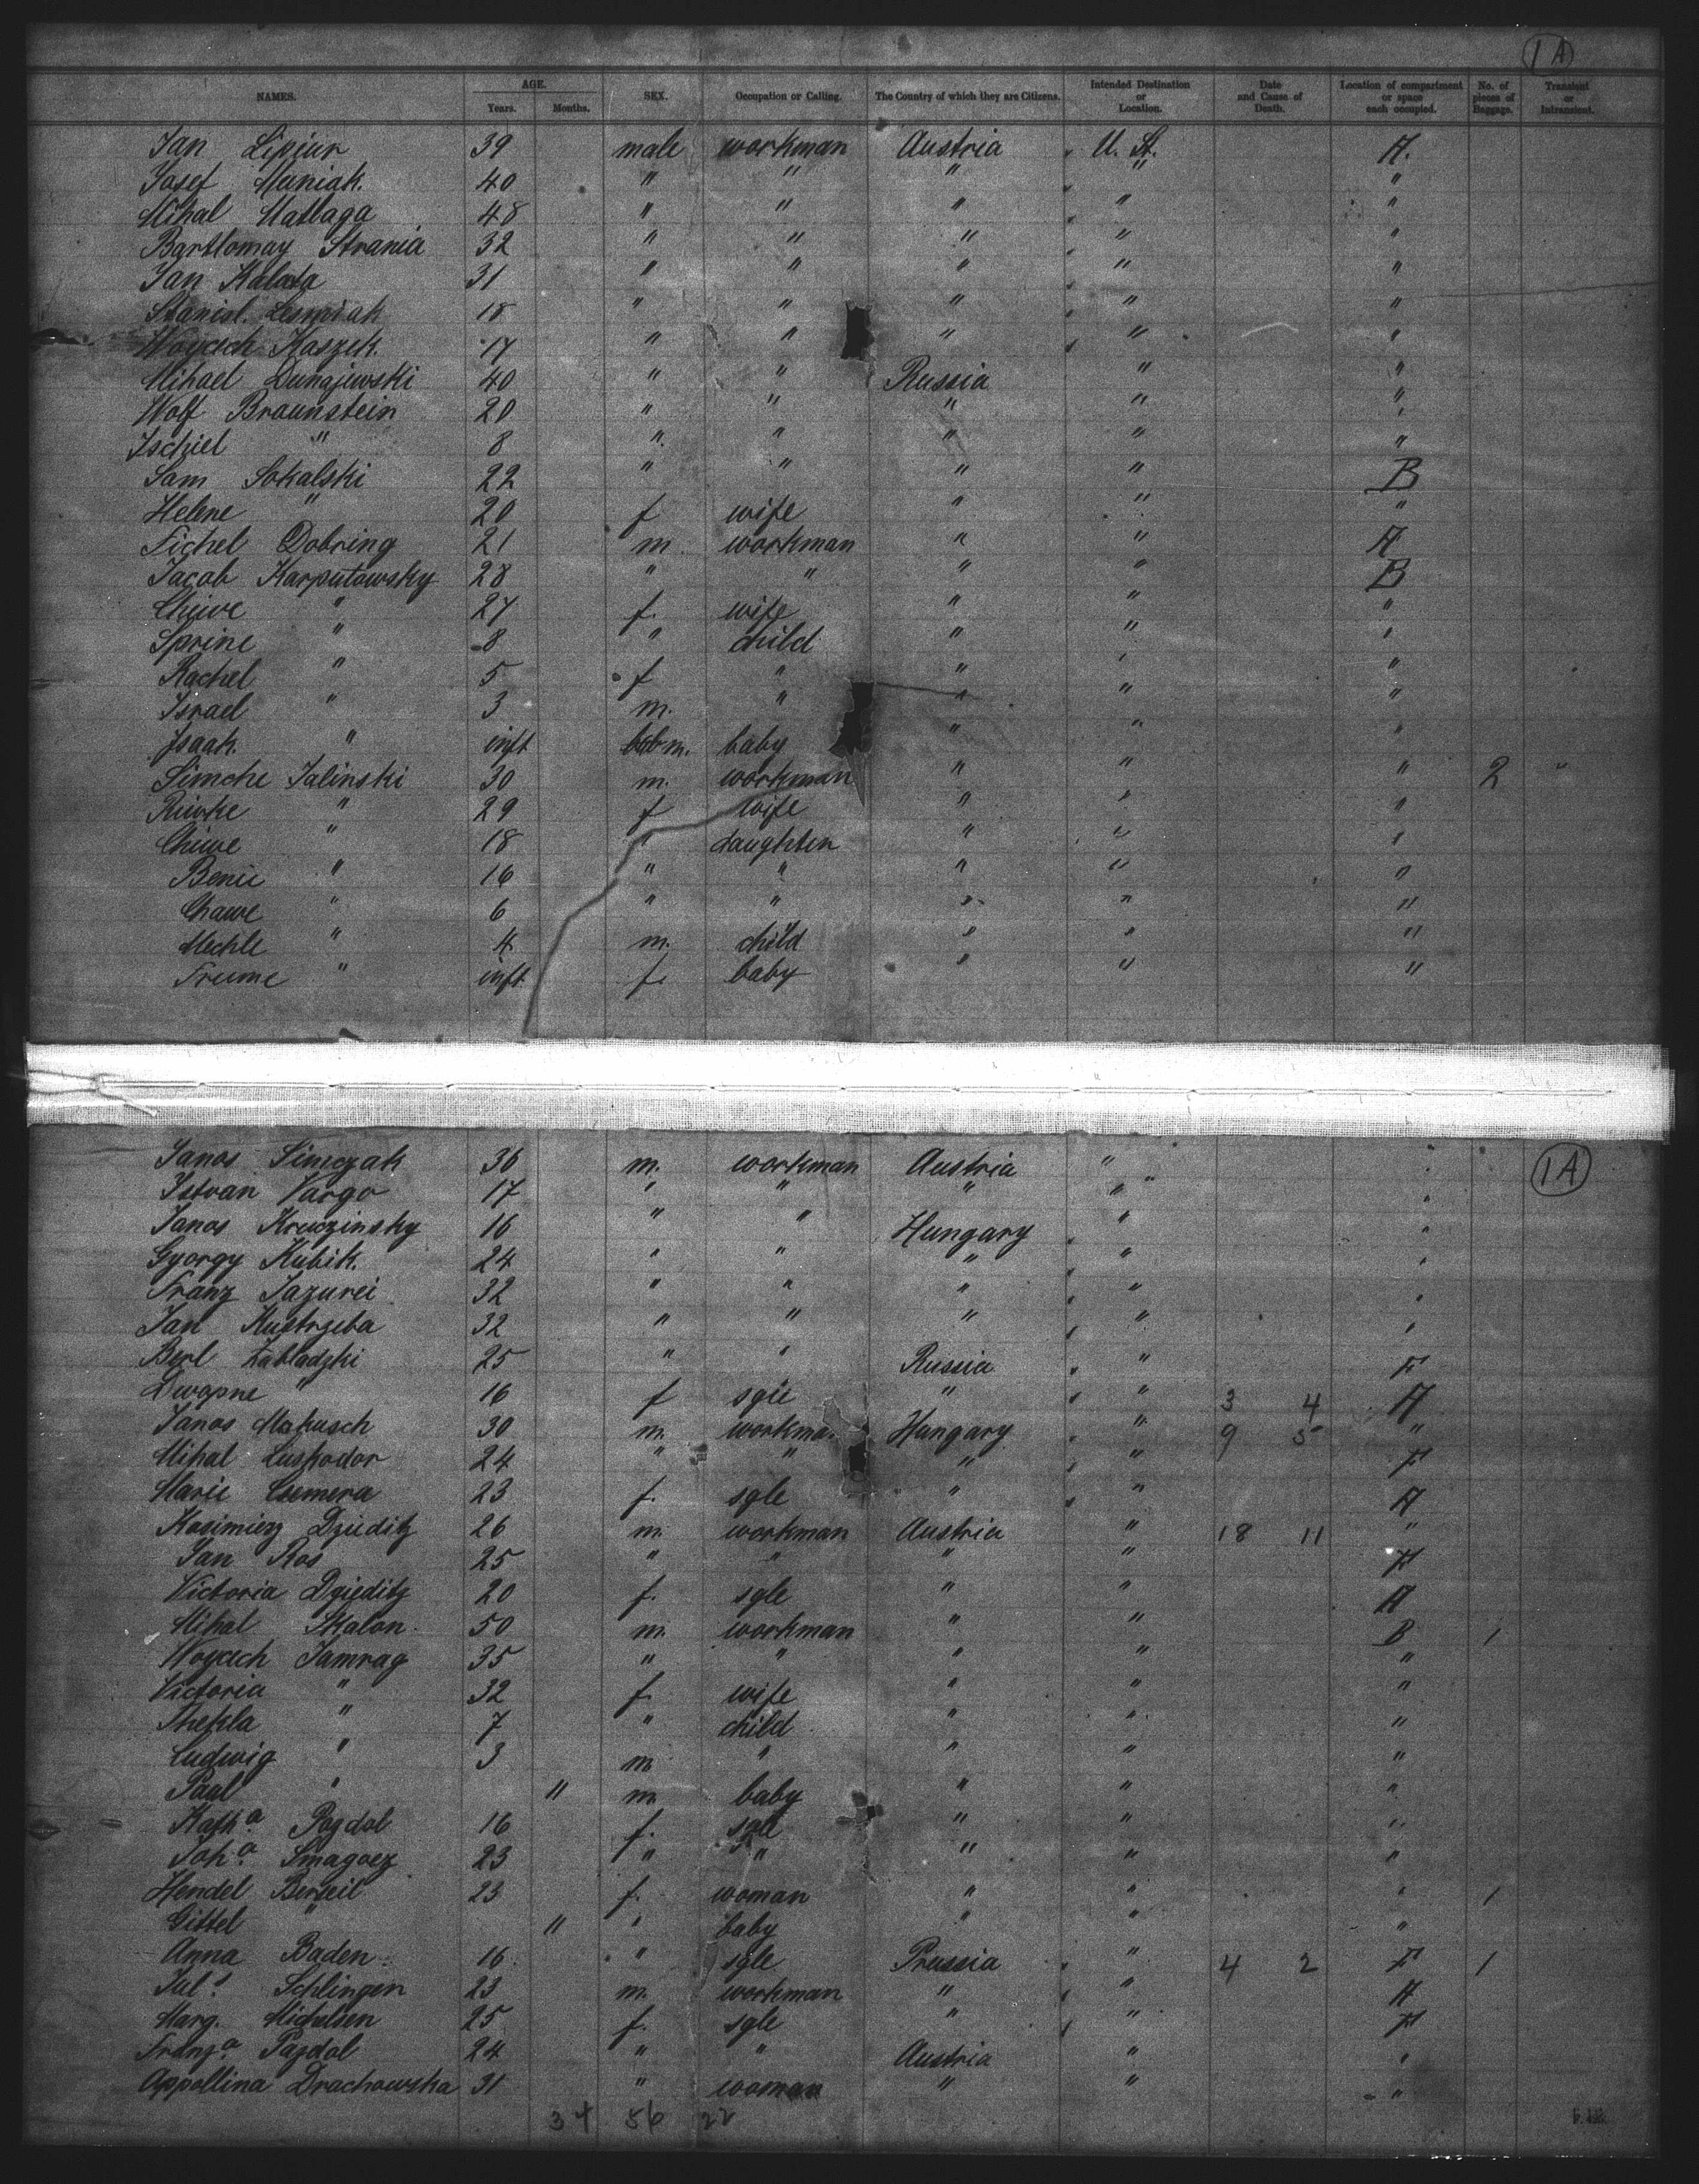 1A
NAMES. AGE. Years. Months. SEX. Occupation or Calling. The Country of which they are Citizens. Intended Destination or Location. Date and Cause of Death. Location of compartment or space each occupied. No. of pieces of Baggage. Transient or Intransient.
Jan Lipjur 39 male workman Austria " U. St. A.
Josef Muniak. 40 " " " " " "
Mihal Matlaga 48 " " " " " "
Bartlomay Strania 32 " " " " " "
Jan Kalata 31 " " " " " "
Stanisl. Lesniak 18 " " " " " "
Woycech Kaszek. 17 " " " " " "
Mihael Dunajewski 40 " " Russia " "
Wolf Braunstein 20 " " " " "
Ischiel " 8 " " " " "
Sam Sokalski 22 " " " " B
Helene " 20 f wife " " "
Fichel Dobring 21 m. workman " " A
Jacob Karputowsky 28 " " " " B
Chiwe " 27 f. wife " " "
Sprine " 8 " child " " "
Rachel " 5 f " " " "
Israel " 3 m. " " " "
Isaak. " inft m. baby " " "
Simche Jalinski 30 m. workman " " " 2 "
Riwke " 29 f wife " " "
Chiwe " 18 " daughter " " "
Benie " 16 " " " " "
Chawe " 6 " " " " "
Mechle " 4 m. child " " "
Freume " inft. f. baby " " "
Janos Simczak 36 m. workman Austria " " 1A
Istvan Vargo 17 " " " " "
Janos Kruczinsky 16 " " Hungary " " "
Gyorgy Kubik. 24 " " " " " "
Franz Jazurei 32 " " " " " "
Jan Kustrzeba 32 " " " " " "
Berl Zabladzki 25 " " Russia " " F
Dwopne " 16 f sgle " " " 3 4 A
Janos Makusch 30 m. workman Hungary " " 9 5 "
Mihal Luskodor 24 " " " " " F
Marie Csemera 23 f. sgle " " " A
Kasimierz Dzieditz 26 m. workman Austria " 18 11 "
Jan Ros 25 " " " " F
Victoria Dzieditz 20 f. sgle " " A
Mihal Skalon. 50 m. workman " " B 1
Woycech Jamrag 35 " " " " "
Victoria " 32 f. wife " " "
Thekla " 7 " child " " "
Ludwig " 3 m. " " " "
Paul " 11 m. baby " " "
Kath.a Pazdol 16 f. sgle " " "
Joh.a Smagoez 23 " " " " "
Hendel Berzeil 23 f. woman " " " 1
Gittel " 11 " baby " " "
Anna Baden. 16 " sgle Prussia " " 4 2 F 1
Jul.s Schlingen 23 m. workman " " " A
Marg. Michelsen 25 f. sgle " " " F
Franz.a Pazdol 24 " " Austria " "
Appollina Drachowska 31 " woman " " "
34 56 22